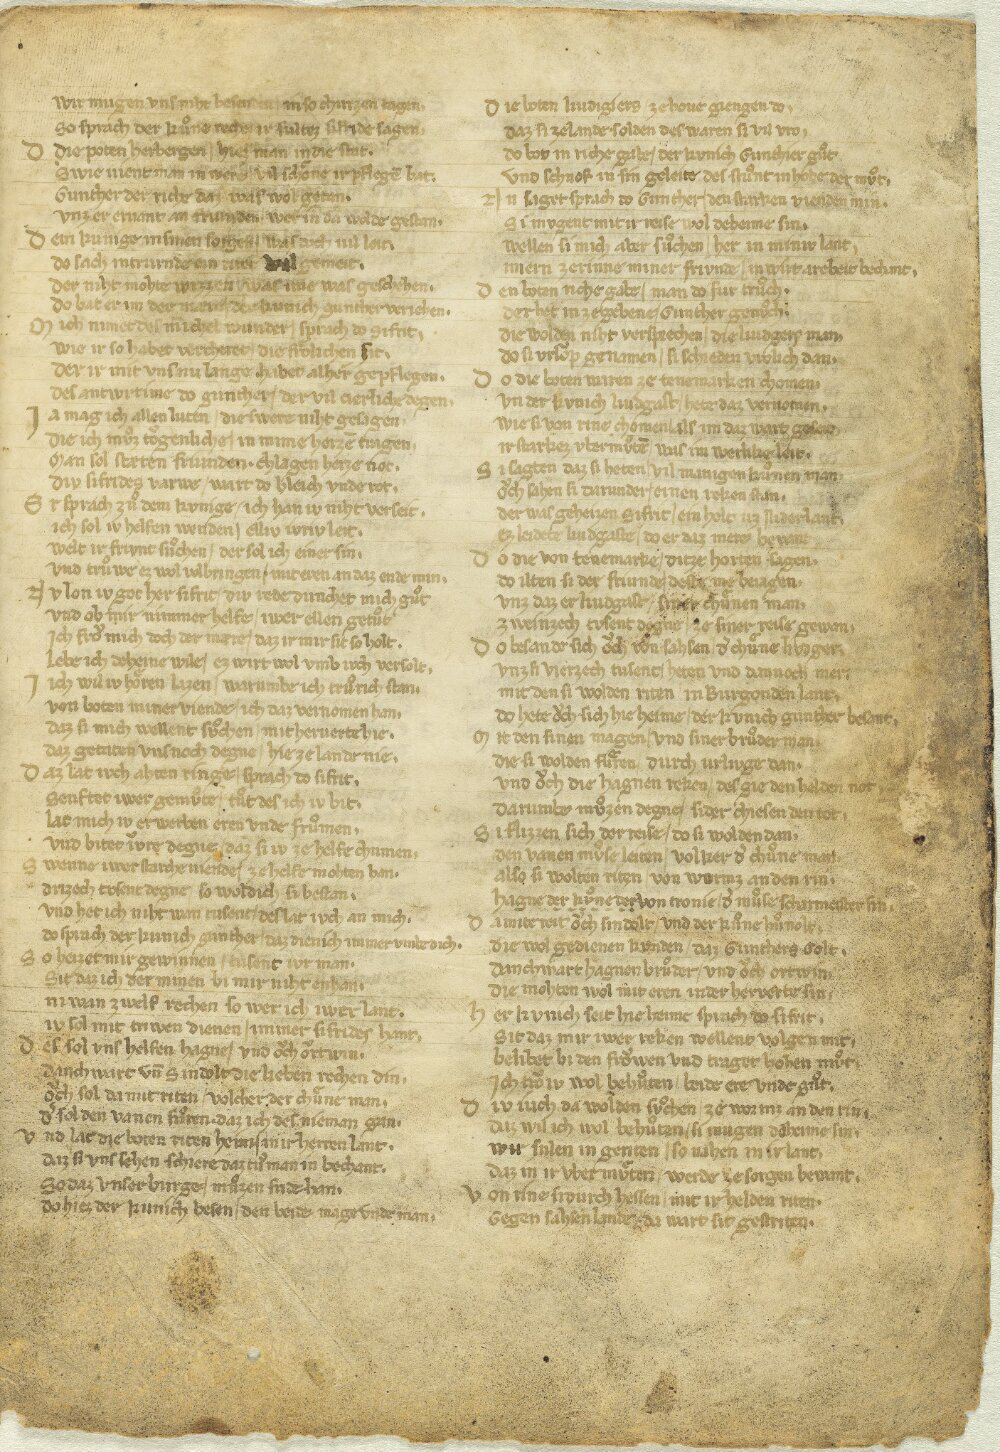 Wir mugen vns niht besenden in so churzen tagen.
So sprach der kůne reche ir sultez sifride sagen.
D die poten herbergen / hiez man in die stat.
Swie vient man in were / vil schone ir pflegē bat.
Gunther der riche daz waſ wol getan.
vnz er ervant an friunden / wer in da wolde gestan.
D em kunige in sinen sorgen / was doch vil leit.
do sach in trurnde ein riter wol gemeit.
der niht mohte wizzen / waſ ime was geschehen.
Do bat er im der mære / der kunich gunther veriehen.
M ich nimet des michel wunder / sprach do Sifrit,
wie ir so habet vercheret / die frolichen sit,
Der ir mit vns nu lange / habet alher gepflegen.
Des antwrtime do gunther / der vil cierliche degen.
J a mag ich allen luten / die swere niht gesagen
Die ich můz tǒgenliche / in mime herze tragen,
Man sol stæten friunden . chlagen herze not.
Div sifrides varwe / wart do bleich vnde rot.
E r sprach zů dem kvnige / ich han iv niht verseit.
ich sol iv helfen wenden / elliv iwriv leit.
welt ir frivnt sůchen / der sol ich einer sin.
vnd trůwe ez wol volbringen / mit eren an daz ende min.
N v lon iv got her sifrit / div rede dunchet mich gůt
vnd ob mir nimmer helfe / iwer ellen getůt
Ich frǒ mich doch der mære / daz ir mir sit so holt.
Lebe ich deheine wile / ez wirt wol vmb ivch versolt.
J ich wil iv hǒren lazen / warumbe ich trůrich stan.
von boten miner viende / ich daz vernomen han.
daz si mich wellent sůchen / mit hervertē hie.
daz getaten vns noch degne / hie ze lande nie.
D az lat ivch ahten ringe / sprach do sifrit.
Senftet iwer gemůte / tůt des ich iv bit.
Lat mich iv erwerben eren vnde frůmen.
vnd bitet iwre degne / daz si iv ze helfe chumen.
S wenne iwer starche viende / ze helfe mohten han.
drizech tvsent degne so wold ich si bestan.
vnd het ich niht wan tusent / des lat ivch an mich.
do sprach der kunich gunther / daz dien ich immer vmbe dich.
S o heizet mir gewinnen / tusent iwr man.
Sit daz ich der minen bi mir niht enhan.
niwan zwelf rechen so wer ich iwer lant.
iv sol mit triwen dienen / immer sifrides hant.
D es sol vns helfen hagne / vnd ǒch ǒrtwin.
danchwart vn̄ Sindolt die lieben rechen din.
ǒch sol da mit riten / volcher der chůne man.
d' sol den vanen fůren . daz ich des nieman gan.
V nd lat die boten riten heim / in ir herren lant.
daz si vns sehen schiere daz tů man in bechant.
So daz vnser burge / můzen fride han.
do hiez der kunich besen / den beide mage vnde man.
D ie boten liudigers ze houe giengen do.
daz si ze lande solden des waren si vil vro.
do bot in riche gabe / der kvnich Gunther gůt
vnd schůf in sin geleite des stůnt in hohe der můt.
N v saget sprach do Gunther / den starken vienden min.
Si mvgent mit ir reise wol deheime sin.
Wellen si mich aber sůchen / her in miniv lant,
mirn zerinne miner frivnde / in wirt arebeit bechant.
D en boten riche gabe / man do fur trůch.
Der het in ze gebene / Gunther genůch.
die wolden niht versprechen / die liudgers man.
do si vrlǒp genamen / si schieden vrolich dan.
D o die boten waren ze tenemarken chomen.
vn der kvnich liudgast / hete daz vernomen.
wie si von rine chomen / als im daz wart geseit.
ir starkez vbermůten / was im werliche leit.
S i sagten daz si heten / vil manigen kůnen man.
ǒch sahen si darunder / einen reken stan.
der was geheizen Sifrit / ein helt uz niderlant.
ez leidete liudgaste / do er daz mere bevant.
D o die von tenemarke / ditze horten sagen.
do ilten si der friunde / deste me beiagen.
vnz daz er liudgast / siner chůnen man.
zweinzech tvsent degne / ze siner reise gewan.
D o besande sich ǒch von sahsen / d' chůne liudger.
vnz si vierzech tusent / heten vnd dannoch mer.
mit den si wolden riten in Burgonden lant.
do hete ǒch sich hie heime / der kvnich gunther besant.
M it den sinen magen / vnd siner brůder man.
die si wolden fůren / durch urliuge dan.
vnd ǒch die hagnen reken / des gie den helden not.
darumbe můzen degne / sider chiesen den tot.
S i flizzen sich der reise / do si wolden dan.
den vanen můse leiten / volker d' chůne man.
also si wolten riten / von wormz an den rin.
hagne der kůne von tronie / d' můse scharmeister sin.
D a mite reit ǒch sindolt / vnd der kůne hůnolt.
die wol gedienen kvnden / daz Gunthers Golt.
Danchwart hagnen brůder / vnd ǒch ortwin.
die mohten wol mit eren in der herverte sin.
h er kvnich seit hie heime sprach do sifrit.
Sit daz mir iwer reken wellent volgen mit.
belibet bi den frǒwen vnd traget hohen můt.
Ich trǒ iv wol behůten / beide ere vnde gůt.
D iv iuch da wolden sůchen / ze wormz an den rin.
daz wil ich wol behůten / si mugen da heime sin.
wir sulen in geriten / so nahen in ir lant.
daz in ir vber můten / werde ze sorgen bewant.
V on rine si durch hessen / mit ir helden riten.
Gegen sahsen lande / da wart sit gestriten.